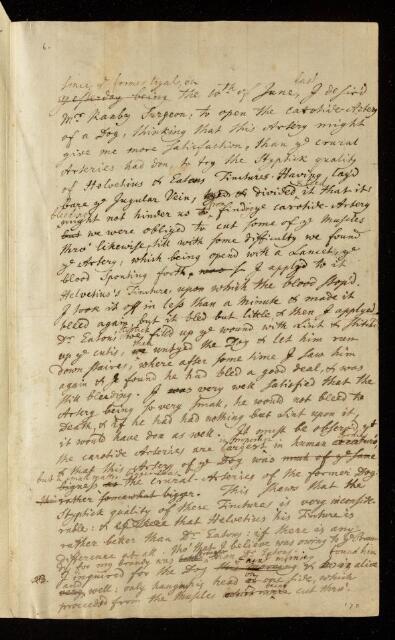 6.
since ye former tryal, on
yesterday being the 10th of June, last I desir'd
Mr Ranby Surgeon, to open the carotide-Artery
of a Dog, thinking that this Artery might
give me more Satisfaction, than ye crural
Arteries had don, to try the Styptick quality
of Helvetius & Eatons Tinctures. Having lay'd
bare ye Jugular Vein, & divided it that it
might not hinder us finding ye carotide-Artery
but we were obliged to cut some of ye Muscles
thro' likewise, till with some difficulty we found
ye Artery; which being open'd with a Lancet, ye
blood Spouting forth, so I apply'd to it
Helvetius's Tincture, upon which the blood stop'd.
I took it off in less than a minute & made it
bleed again, but it bled but little, & then I apply'd
Dr Eatons; we fill'd up ye wound with Lint & stitch'd
up ye cutis, we untyed the Dog & let him run
down staires; where after some time I saw him
again & I found he had bled a good deal, & was
still bleeding. I was very well satisfied that the
Artery being so very small, he would not bleed to
Death, & if he had had nothing but Lint upon it,
it would have don as well. It must be observed yt
the carotide Arteries are largest in human
& that this Artery of ye Dog was much of ye same
bigness as the crural-Arteries of the former Dog
rather somewhat bigger. This shaws that the
Styptick quility of these Tinctures is very inconside-
rable: & if there that Helvetius his Tincture is
rather better than Dr Eatons: if there is any
difference at all. tho' that I believe was owing to ye
of for my brandy was than Dr Eatons.
I inquired for the Dog & found him alive
and very well: only hanging his head on one side, which
proceeded from the Muscles being cut thro'.